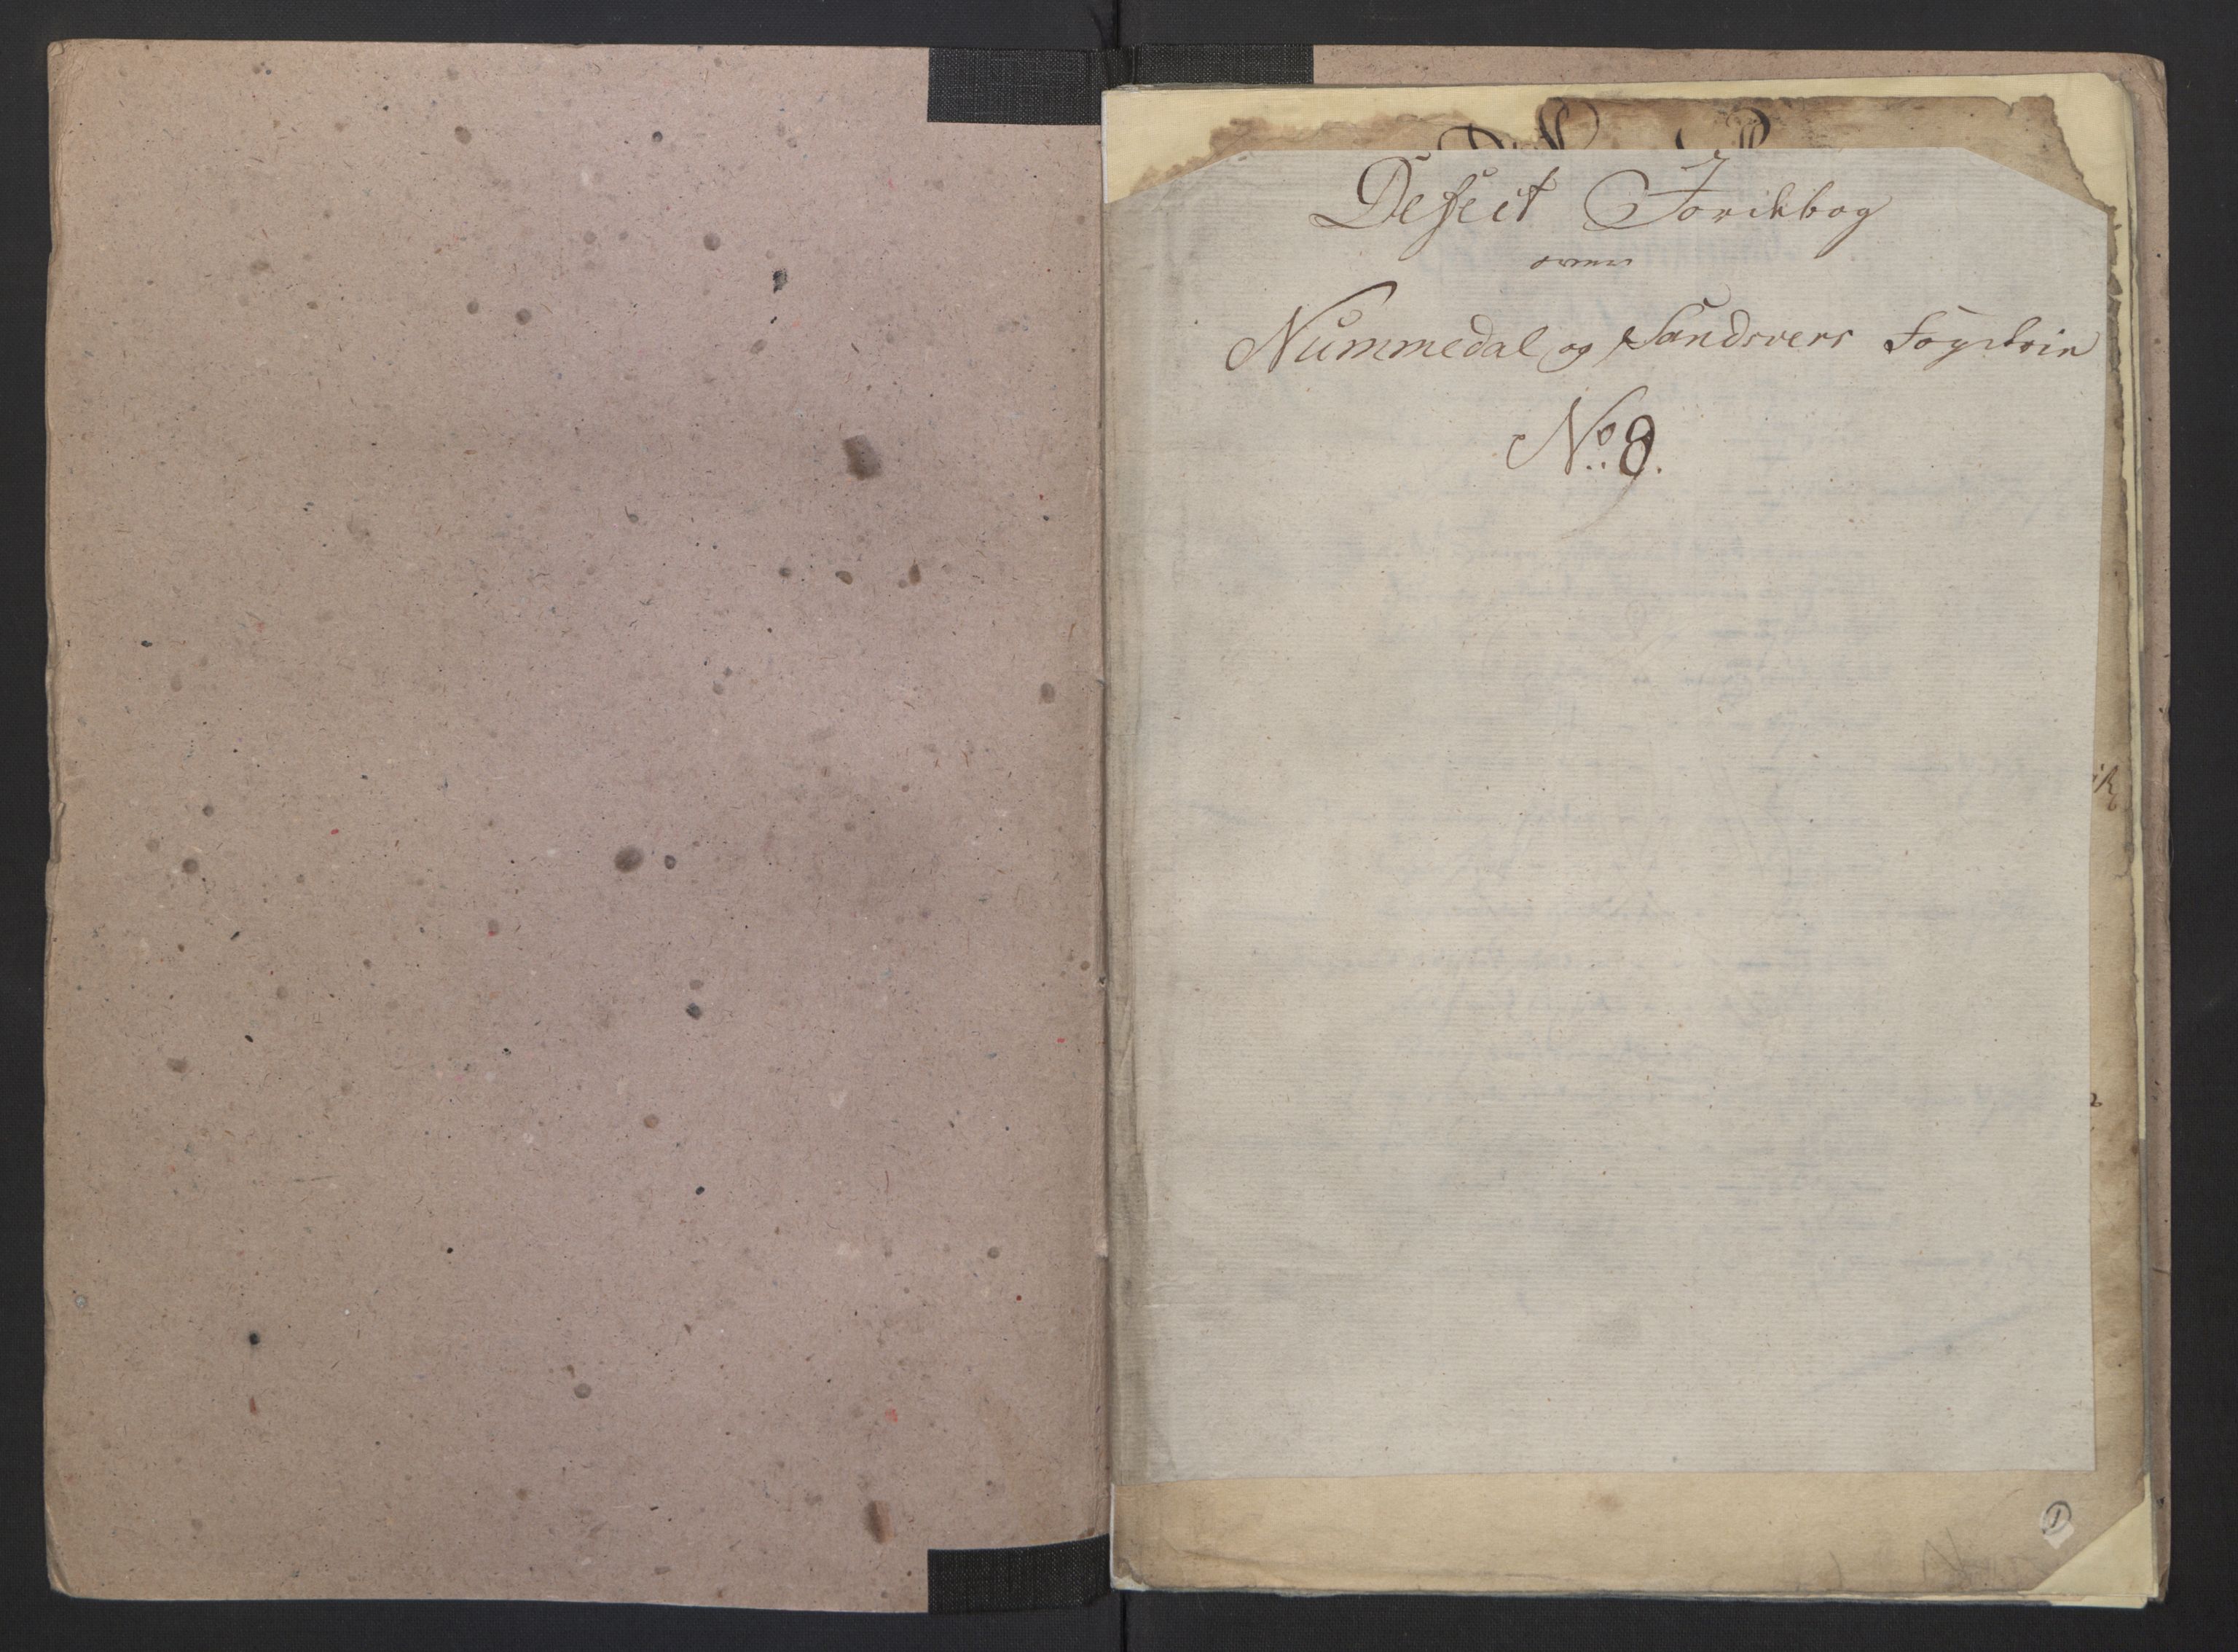 Defect Jordebog
over
Nummedal og Sandsvers Fogderie
No. 8.
1